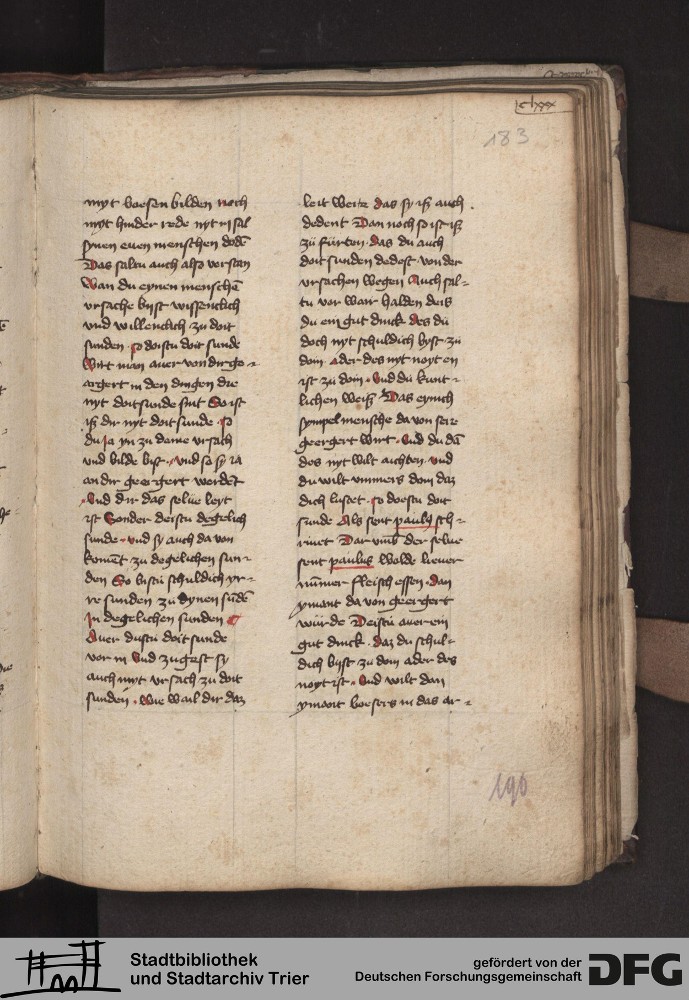 clxxx
183
myt boesen bilden noch
myt hinder rede nyt in sal
synen euen menschen dodē
Das saltu auch also verstan
Wan du eynen menschē
vrsache bist wissenlich
vnd willenclich zu doit
sunden so doistu doit sunde
Wirt man auer von dir ge-
argert in den dingen die
nyt doit sunde sint So ist
iß dir nyt doit sunde so
du ia ym zu deme vrsach
vnd bilde bist vnd so sy ia
an dir geergert werdēt
Vnd dir das selue leyt
ist Sonder deistu degelich
sunde vnd sy auch da von
komēt zu degelichen sun-
den So bistu schuldich yr-
re sunden zu dynen sūdē
In degelichen sunden
Auer dustu doit sunde
vor in Vnd zugest sy
auch myt vrsach zu doit
sunden Wie wail dir daz
leit were das sy iß auch
dedent Dan noch so ist iß
zü fürten das du auch
doit sunden dedest von der
vrsachen wegen Auch sal-
tu vor wair halden deis
du ein gut dinck des du
doch nyt schuldich byst zü
doin ader des nyt noyt en
ist zü doin Vnd dü kunt-
lichen weiß Das eynich
sympel mensche da von sere
geergert wirt Vnd du dā
des nyt wilt auchten vnd
du wilt vmmers doin daz
dich lustet so doestu doit
sunde Als sent paulꝰ sch-
riuet Dar vmb der selue
sent paulus wolde lieuer
nūmer fleisch essen dan
ymant da von geergert
würde Deistu auer ein
gut dinck daz du schul-
dich byst zu doin ader des
noyt ist Vnd wilt dan
ymant boesers in das ar-
190
Stadtbibliothek
und Stadtarchiv Trier
gefördert von der
Deutschen Forschungsgemeinschaft
DFG